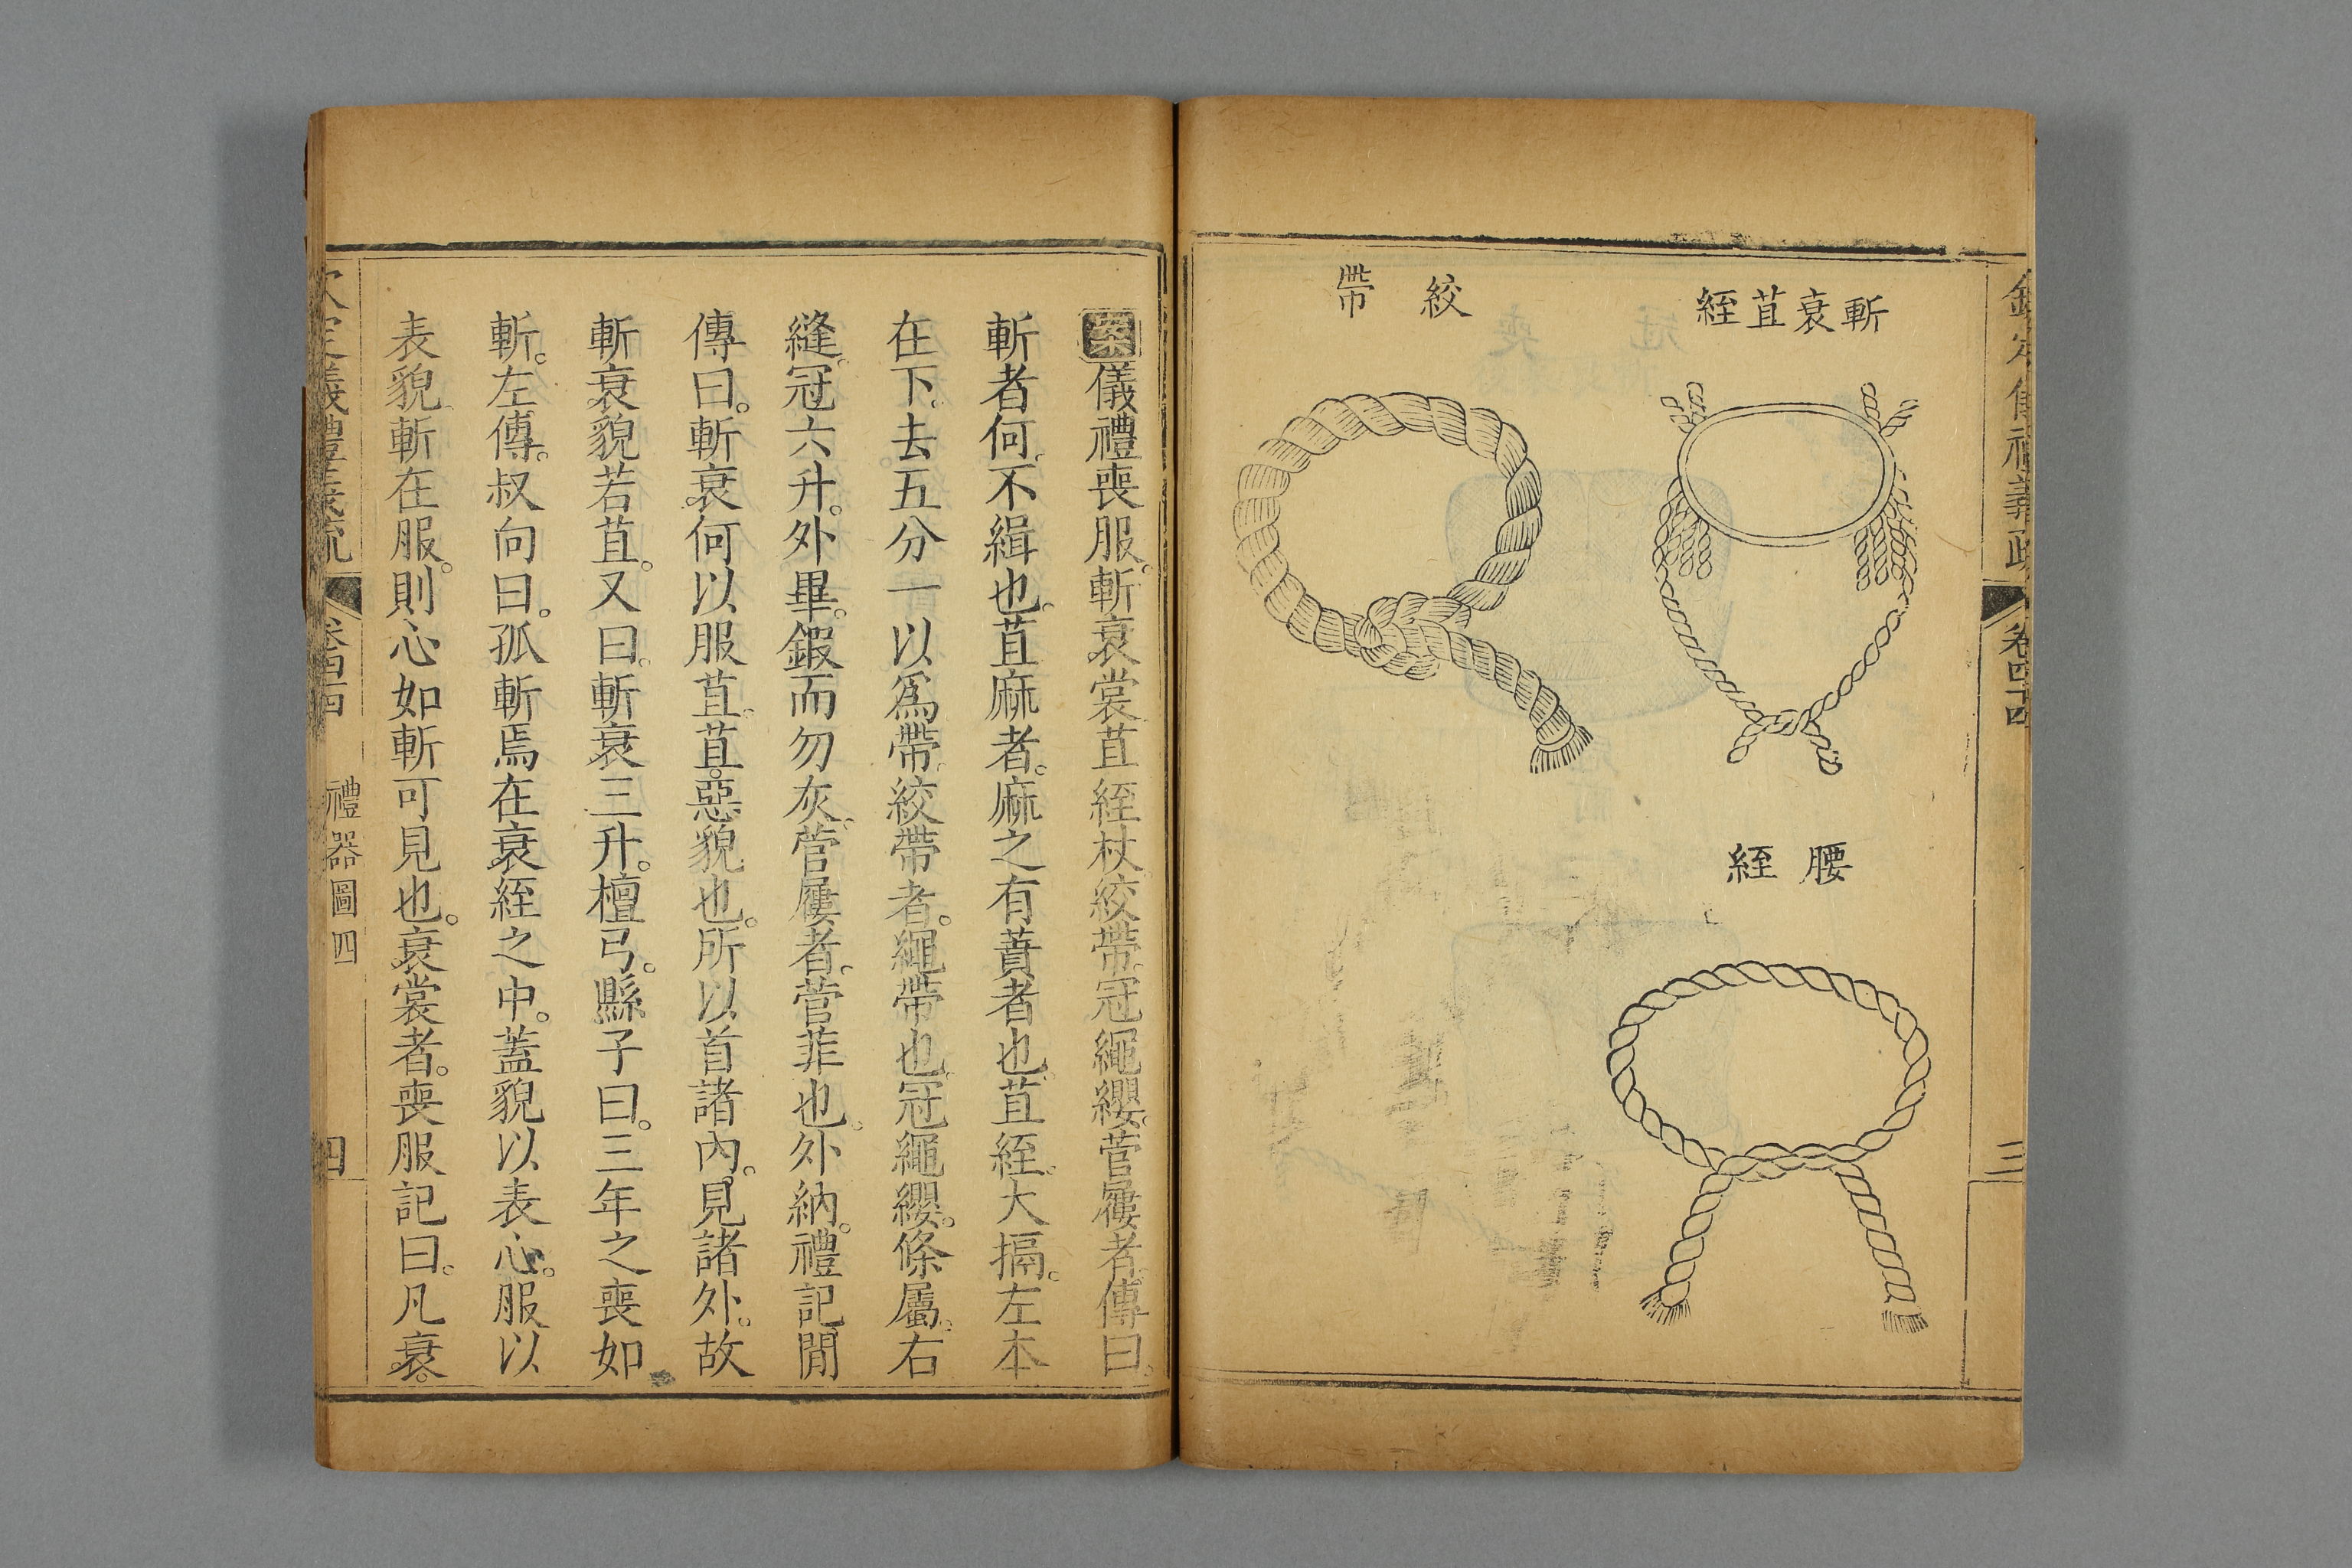 欽定儀禮義疏 卷四十四 三
斬衰苴絰
腰絰
絞帶
案儀禮喪服。斬衰裳苴絰杖絞帶。冠繩纓。菅屨者。傳曰。
斬者何。不緝也。苴麻者。麻之有蕡者也。苴絰。大搹。左本
在下。去五分一以爲帶。絞帶者。繩帶也。冠繩纓。條屬。右
縫。冠六升。外畢。鍛而勿灰。菅屨者。菅菲也。外納。禮記閒
傳曰。斬衰何以服苴。苴。惡貌也。所以首諸內。見諸外。故
斬衰貌若苴。又曰。斬衰三升。檀弓。縣子曰。三年之喪如
斬。左傳。叔向曰。孤斬焉在衰絰之中。蓋貌以表心。服以
表貌。斬在服。則心如斬可見也。衰裳者。喪服記曰。凡衰。
欽定儀禮義疏 卷四十四 禮器圖四 四